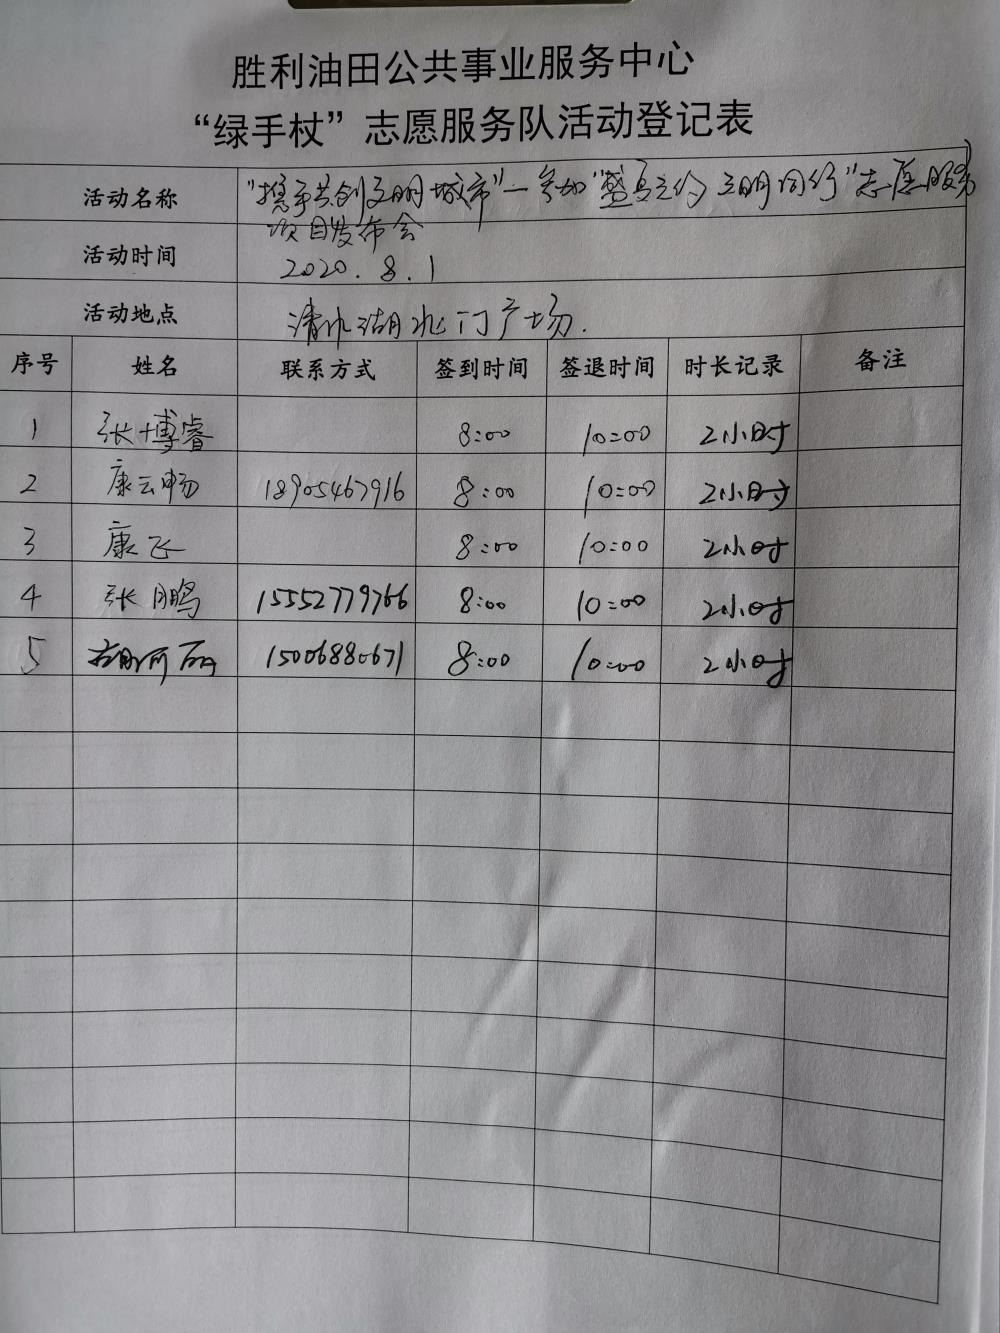 胜利油田公共事业服务中心
“绿手杖”志愿服务队活动登记表
活动名称 “携手共创文明城市”—参加“盛夏之约 文明同行”志愿服务
项目发布会
活动时间 2020.8.1
活动地点 清水湖北门广场.
序号 姓名 联系方式 签到时间 签退时间 时长记录 备注
1 张博睿 8:00 10:00 2小时
2 康云畅 18905467916 8:00 10:00 2小时
3 康飞 8:00 10:00 2小时
4 张鹏 15552779766 8:00 10:00 2小时
5 15006880671 8:00 10:00 2小时